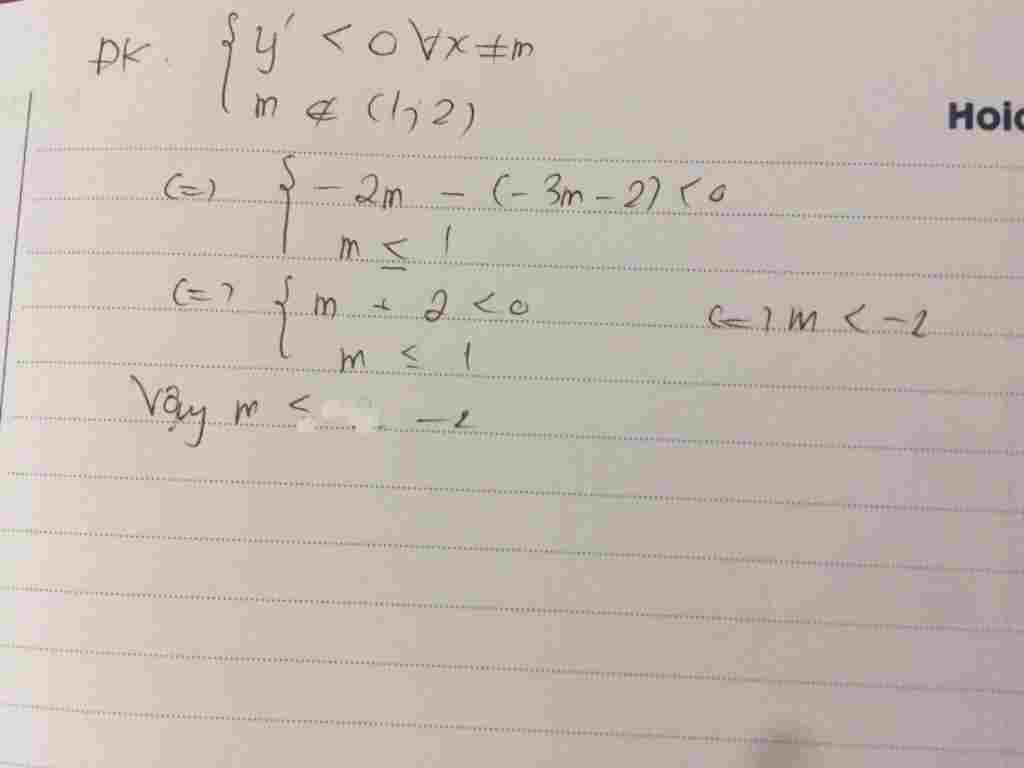 ĐK. { y' < 0 ∀x ≠ m
m ∉ (1; 2)
Hoid
(=) { -2m - (-3m - 2) < 0
m ≤ 1
(=) { m + 2 < 0 (=) m < -2
m ≤ 1
Vậy m < -2